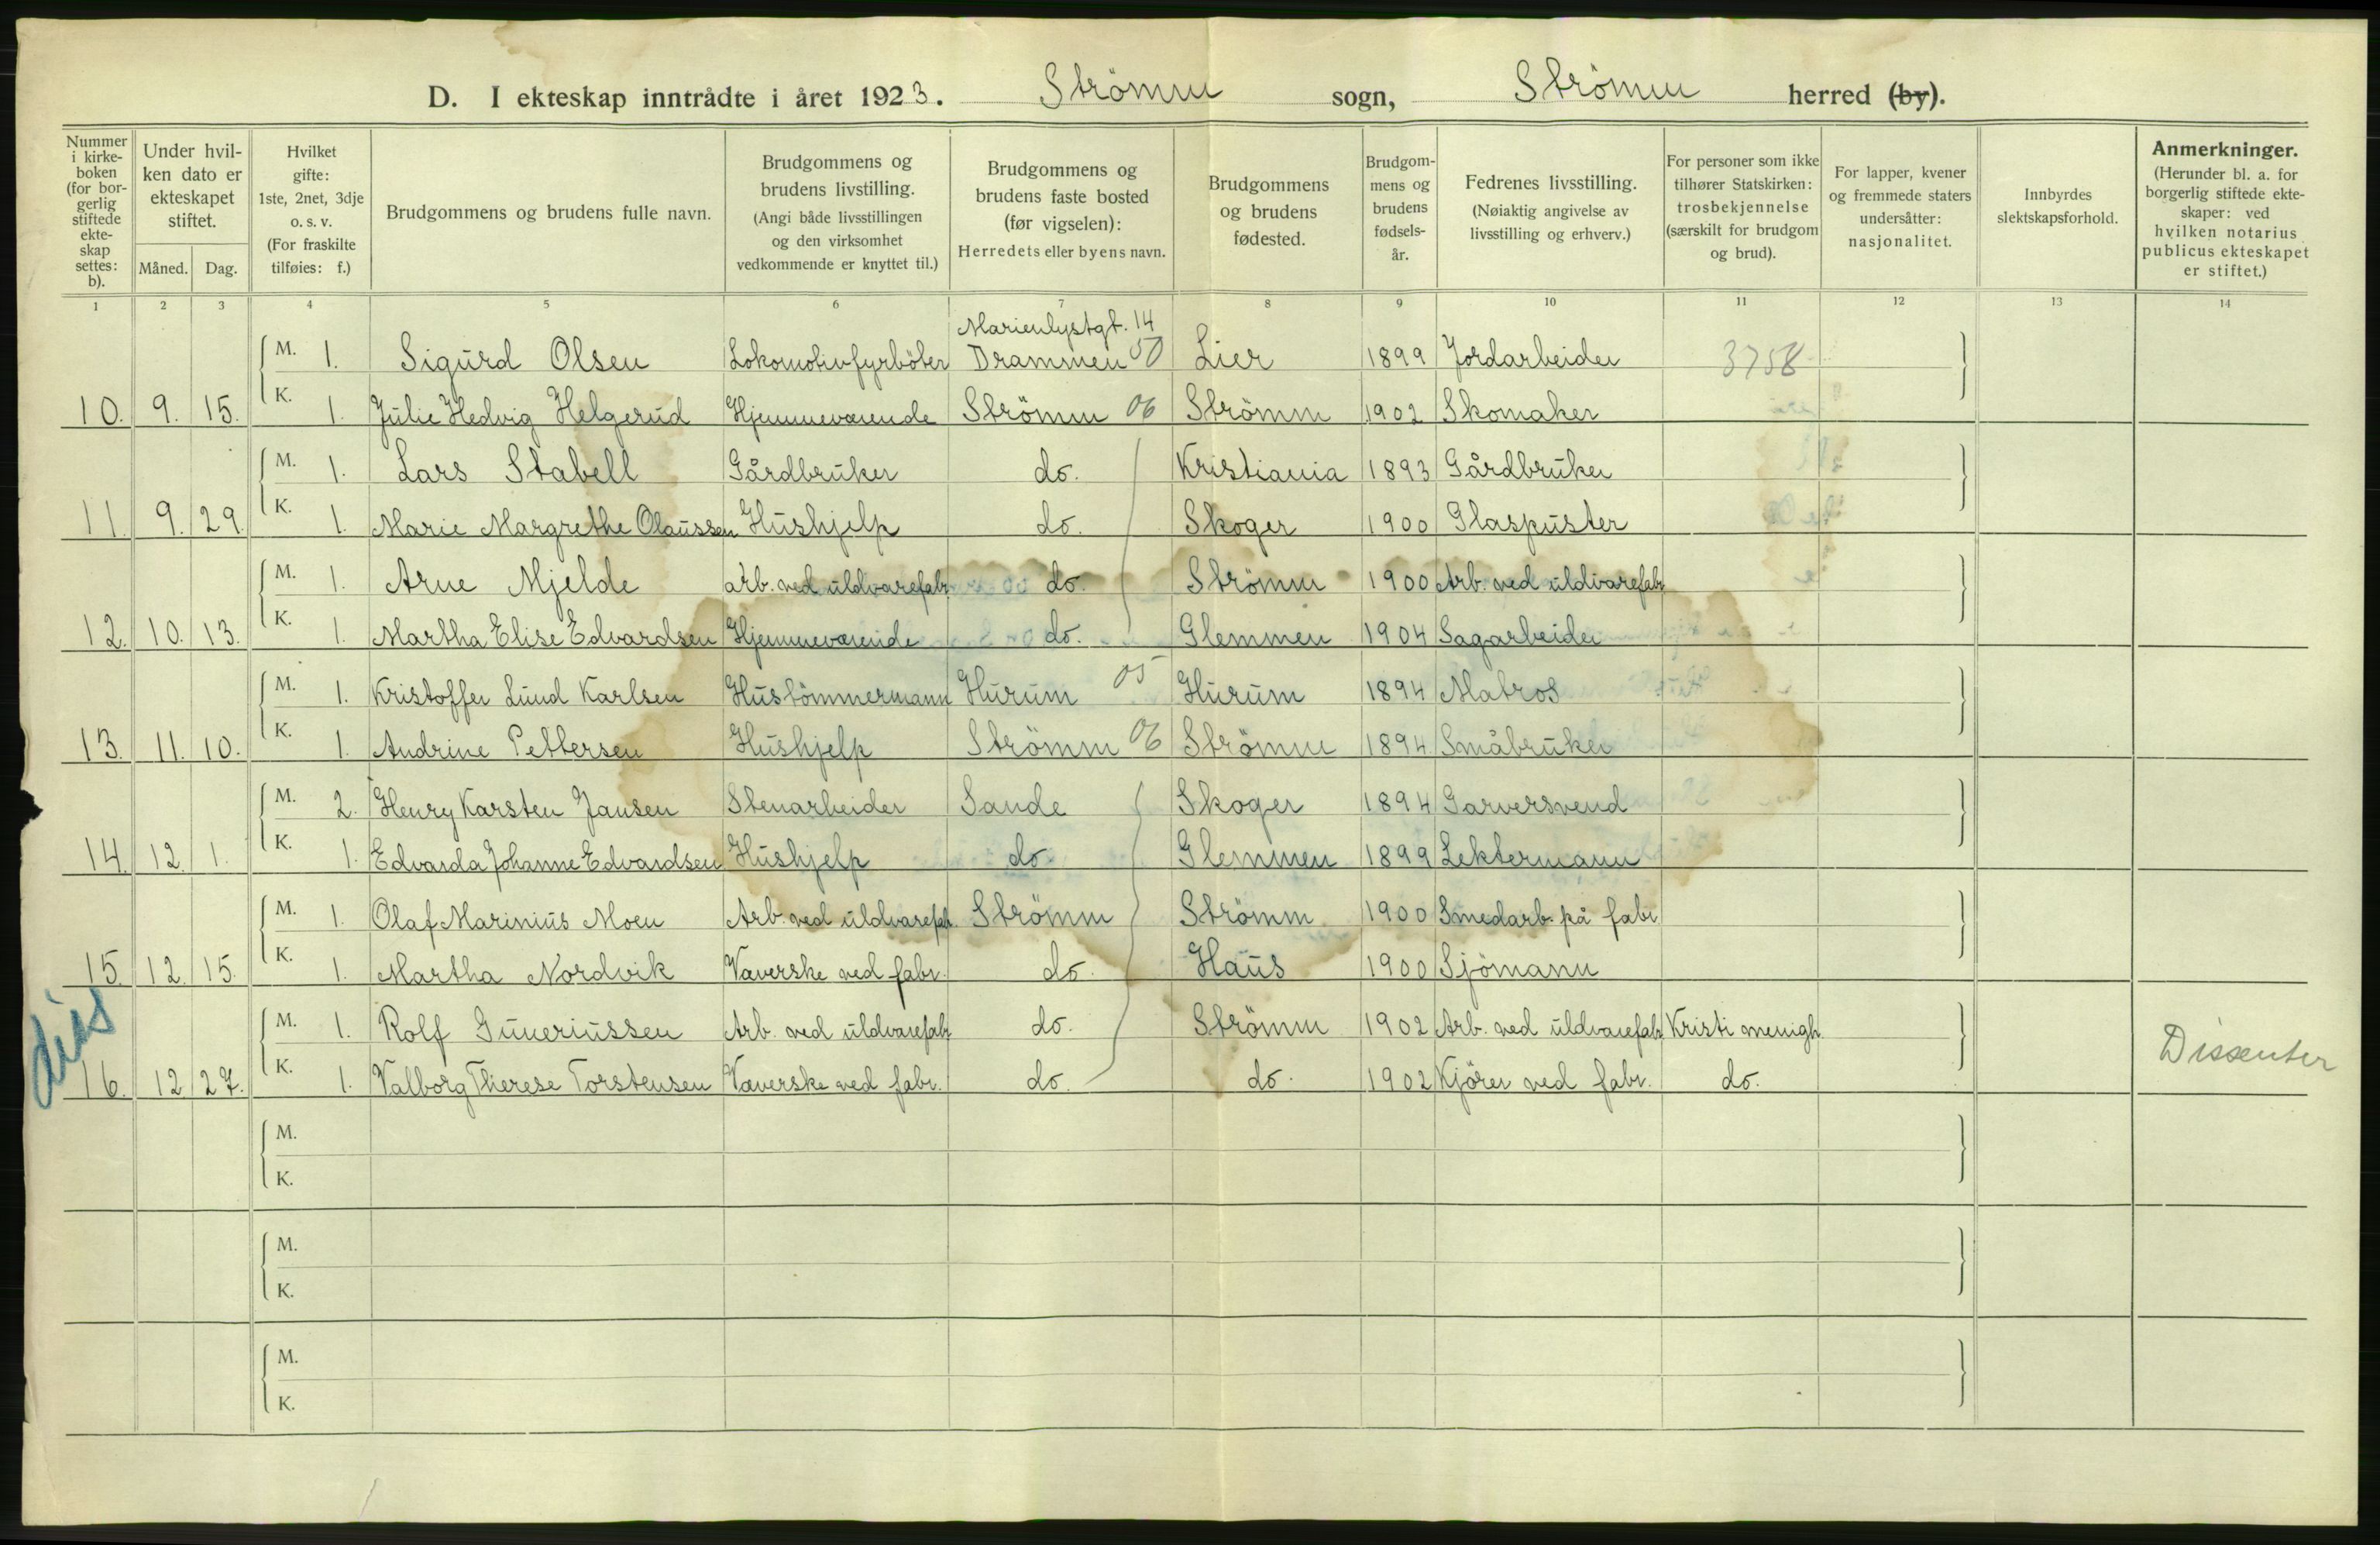 D. I ekteskap inntrådte i året 1923. Strömm sogn, Strömm herred (by).
Nummer i kirkeboken (for borgerlig stiftede ekteskap settes: b).
Under hvilken dato er ekteskapet stiftet.
Måned. Dag.
Hvilket gifte: 1ste, 2net, 3dje o. s. v. (For fraskilte tilføies: f.)
Brudgommens og brudens fulle navn.
Brudgommens og brudens livstilling. (Angi både livsstillingen og den virksomhet vedkommende er knyttet til.)
Brudgommens og brudens faste bosted (før vigselen): Herredets eller byens navn.
Brudgommens og brudens fødested.
Brudgommens og brudens fødselsår.
Fedrenes livsstilling. (Nøiaktig angivelse av livsstilling og erhverv.)
For personer som ikke tilhører Statskirken: trosbekjennelse (særskilt for brudgom og brud).
For lapper, kvener og fremmede staters undersåtter: nasjonalitet.
Innbyrdes slektskapsforhold.
Anmerkninger. (Herunder bl. a. for borgerlig stiftede ekteskaper: ved hvilken notarius publicus ekteskapet er stiftet.)
1 2 3 4 5 6 7 8 9 10 11 12 13 14
Marienlystgt. 14
M. 1. Sigurd Olsen Lokomotivfyrböter Drammen 50 Lier 1899 Jordarbeider 3758
10. 9. 15. K. 1. Julie Hedvig Helgerud Hjemmeværende Strömm 06 Strömm 1902 Skomaker
M. 1. Lars Stabell Gårdbruker do. Kristiania 1893 Gårdbruker
11. 9. 29. K. 1. Marie Margrethe Olaussen Hushjelp do. Skoger 1900 Glaspuster
M. 1. Arne Mjelde arb. ved uldvarefabr. do. Strömm 1900 Arb. ved uldvarefabr.
12. 10. 13. K. 1. Martha Elise Edvardsen Hjemmeværende do. Glemmen 1904 Sagarbeider
M. 1. Kristoffer Lund Karlsen Hustömmermann Hurum 05 Hurum 1894 Matros
13. 11. 10. K. 1. Andrine Pettersen Hushjelp Strömm 06 Strömm 1894 Småbruker
M. 2. Henry Karsten Jansen Stenarbeider Sande Skoger 1894 Garversvend
14. 12. 1. K. 1. Edvarda Johanne Edvardsen Hushjelp do Glemmen 1899 Lektermann
M. 1. Olaf Marinius Moen Arb. ved uldvarefabr. Strömm Strömm 1900 Smedarb. på fabr.
15. 12. 15. K. 1. Martha Nordvik Væverske ved fabr. do. Haus 1900 Sjömann
diss
M. 1. Rolf Guneriussen Arb. ved uldvarefabr. do. Strömm 1902 Arb. ved uldvarefabr. Kristi menigh.
16. 12 27. K. 1. Valborg Therese Torstensen Væverske ved fabr. do. do. 1902 Kjörer ved fabr. do. Dissenter
M.
K.
M.
K.
M.
K.